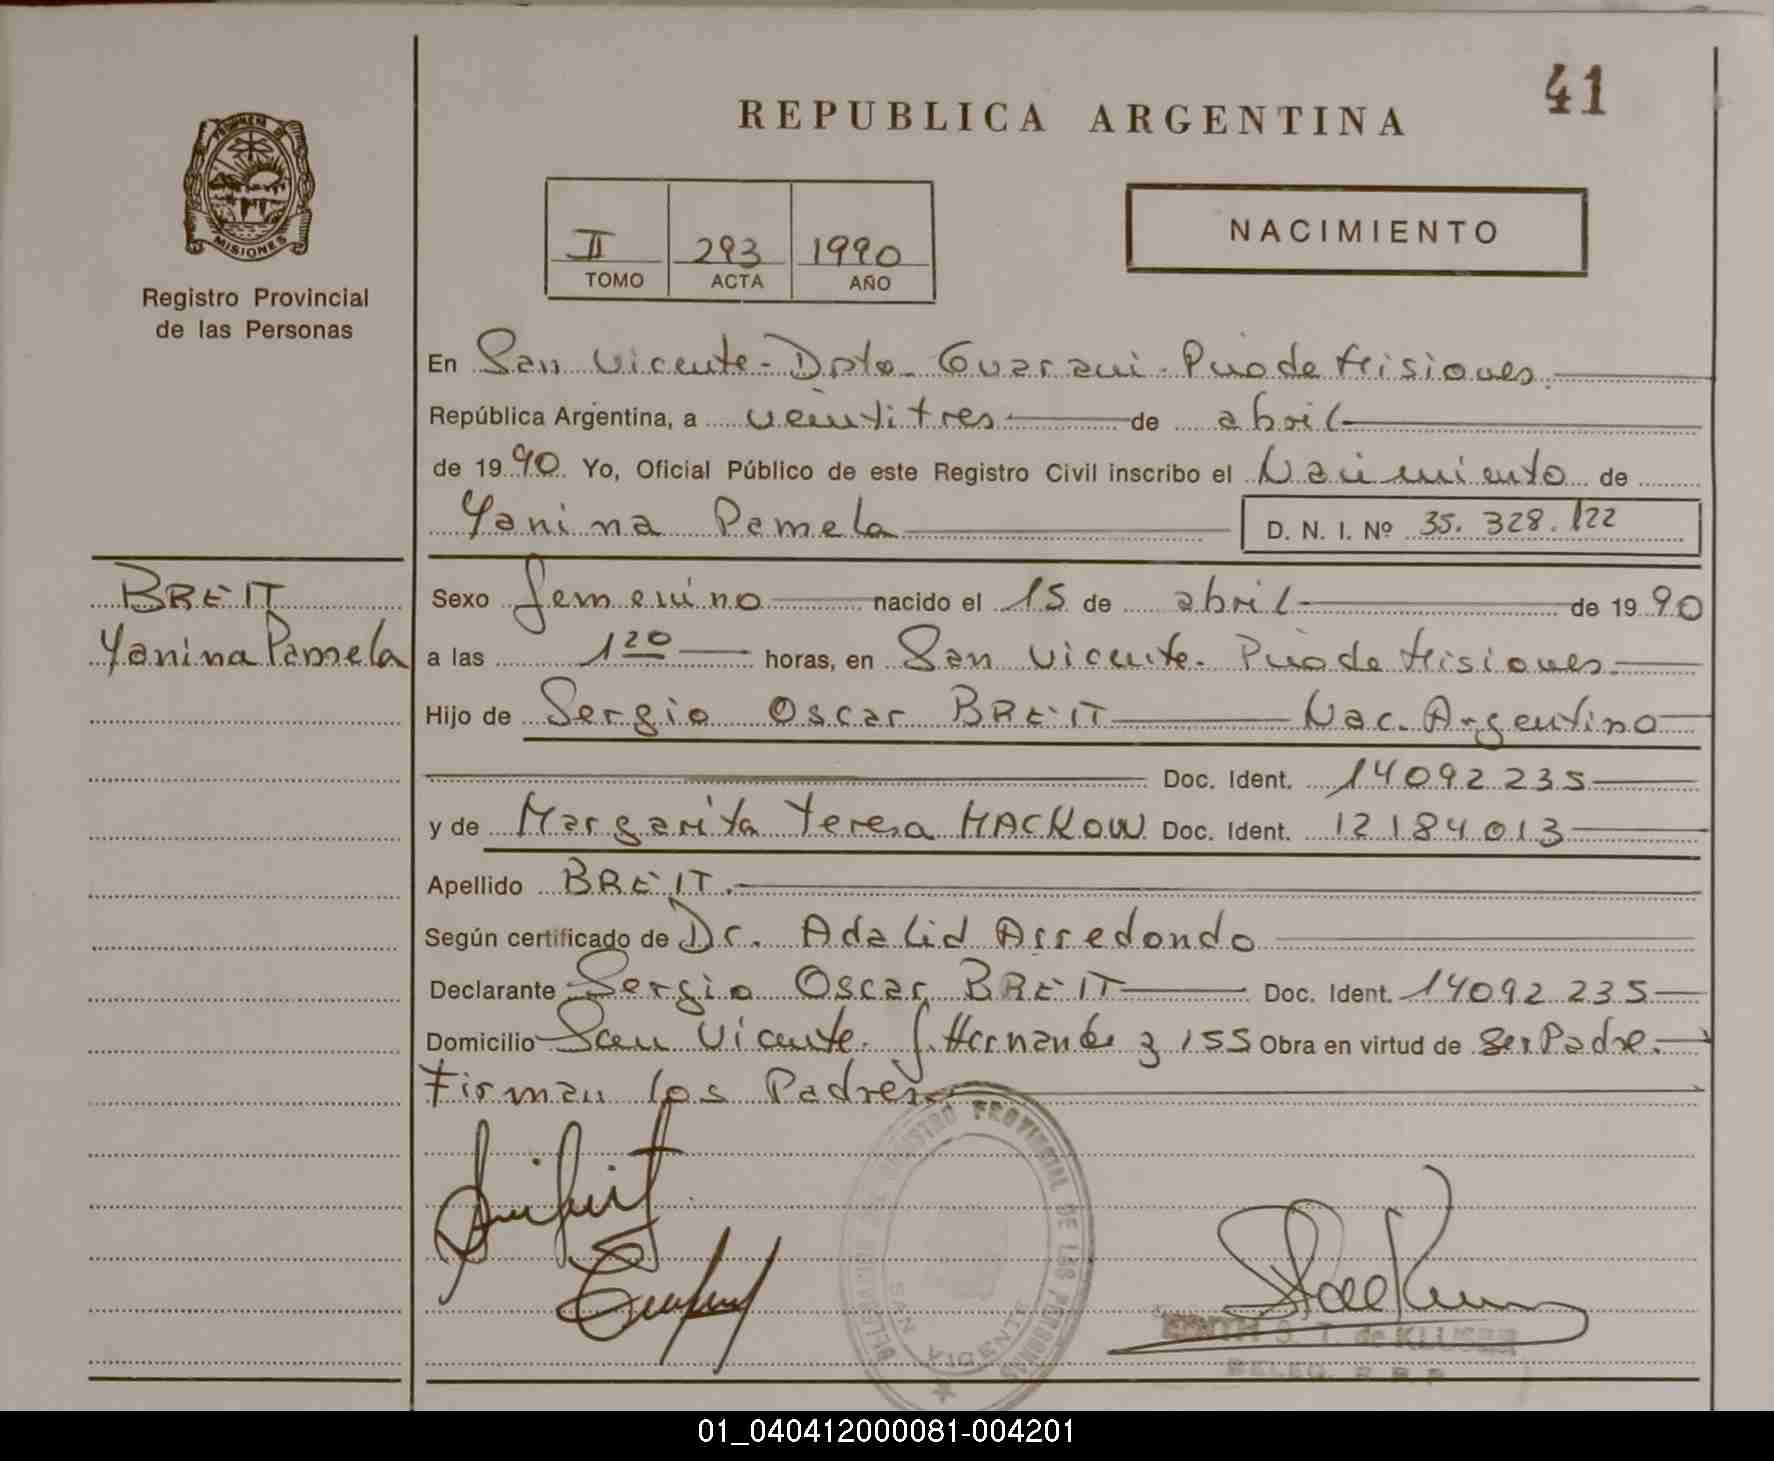 41
REPUBLICA ARGENTINA
PROVINCIA DE
MISIONES
Registro Provincial
de las Personas
II 293 1990
TOMO ACTA AÑO
NACIMIENTO
En San Vicente - Dpto. Guaraní - Pcia de Misiones.
República Argentina, a veintitres de abril
de 1990 Yo, Oficial Público de este Registro Civil inscribo el Nacimiento de
Yanina Pamela D. N. I. Nº 35.328.122
BREIT
Yanina Pamela
Sexo femenino nacido el 15 de abril de 1990
a las 1 20 horas, en San Vicente. Pcia de Misiones.
Hijo de Sergio Oscar BREIT Nac. Argentino
Doc. Ident. 14092235
y de Margarita Teresa MACKOW Doc. Ident. 12184013
Apellido BREIT.
Según certificado de Dr. Adalid Arredondo
Declarante Sergio Oscar BREIT Doc. Ident. 14092235
Domicilio San Vicente. J. Hernandez 155 Obra en virtud de Ser Padre.
Firman los Padres
REGISTRO PROVINCIAL DE LAS PERSONAS
SAN VICENTE
S. T. de KLUSER
DELEG. R. R. P.
01_040412000081-004201